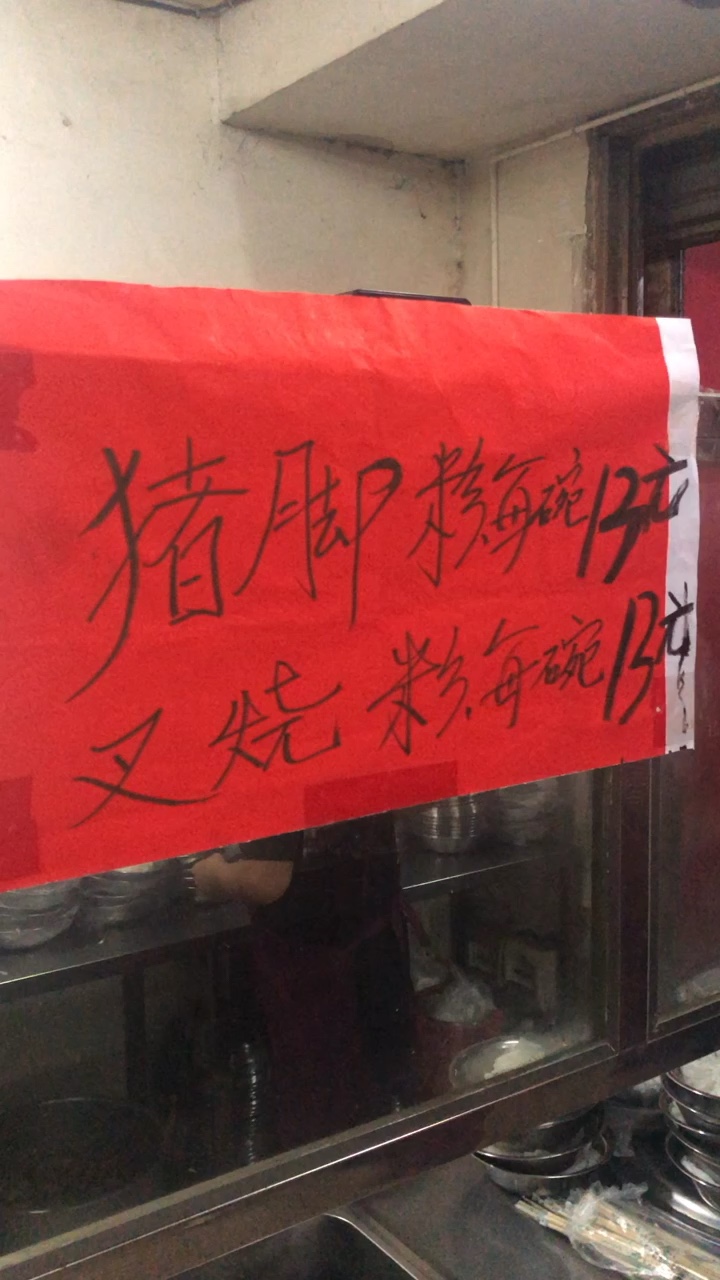 猪脚粉每碗13元
叉烧粉每碗13元